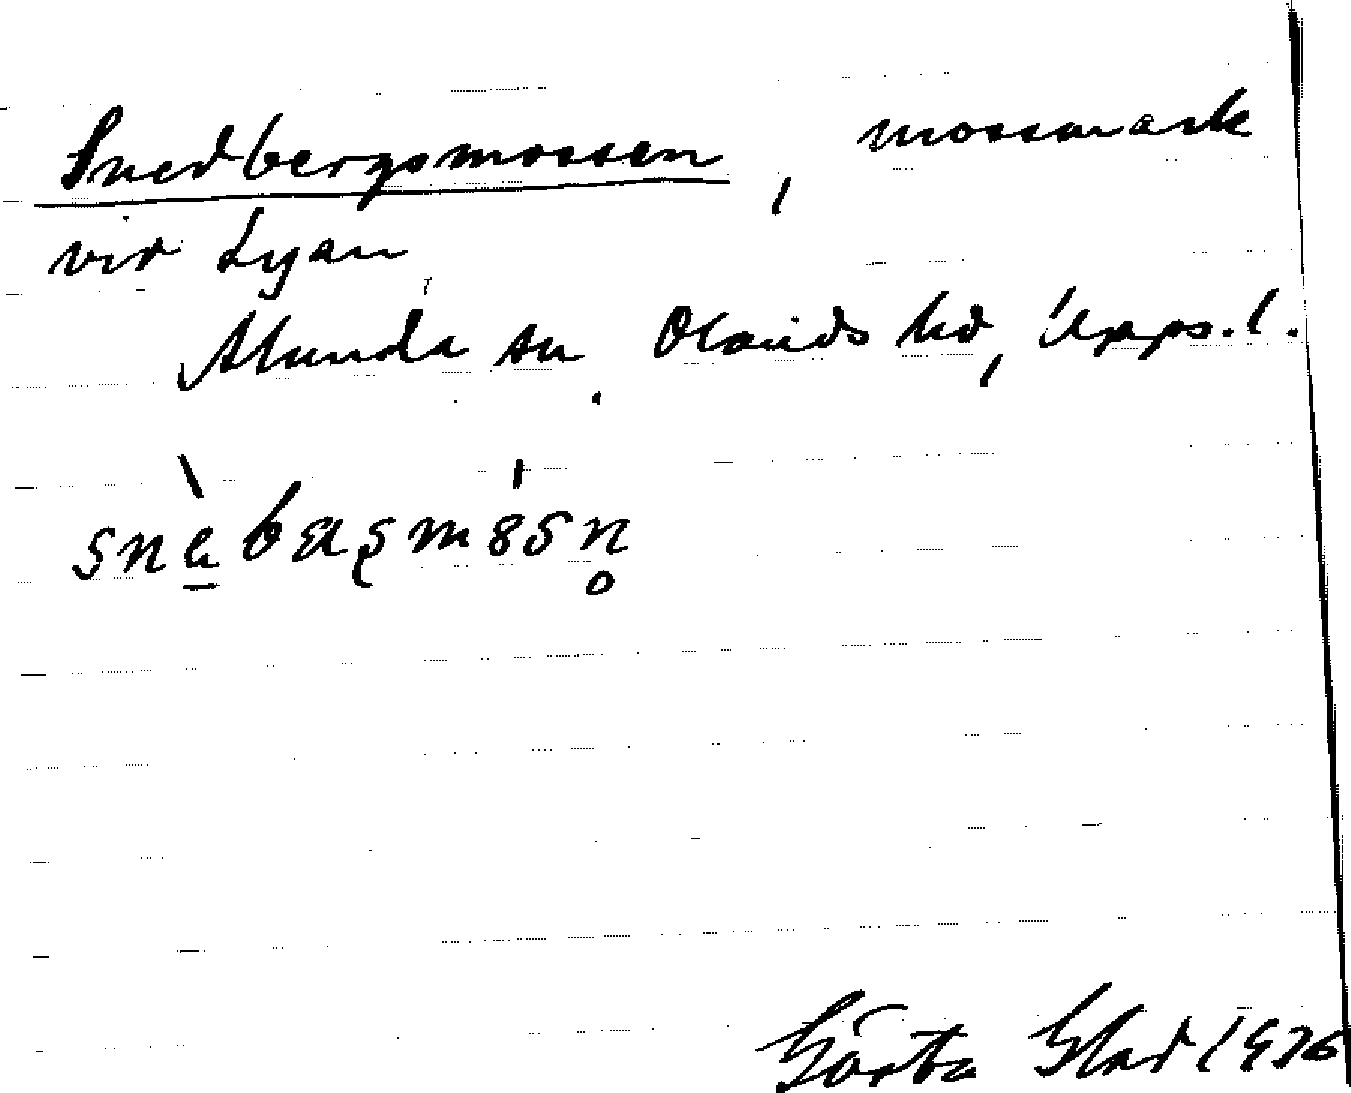 Snedbergsmossen, mossmark
vid Lyan
Alunda sn. Olands hd, Upps. l.
Görta Glad 1936